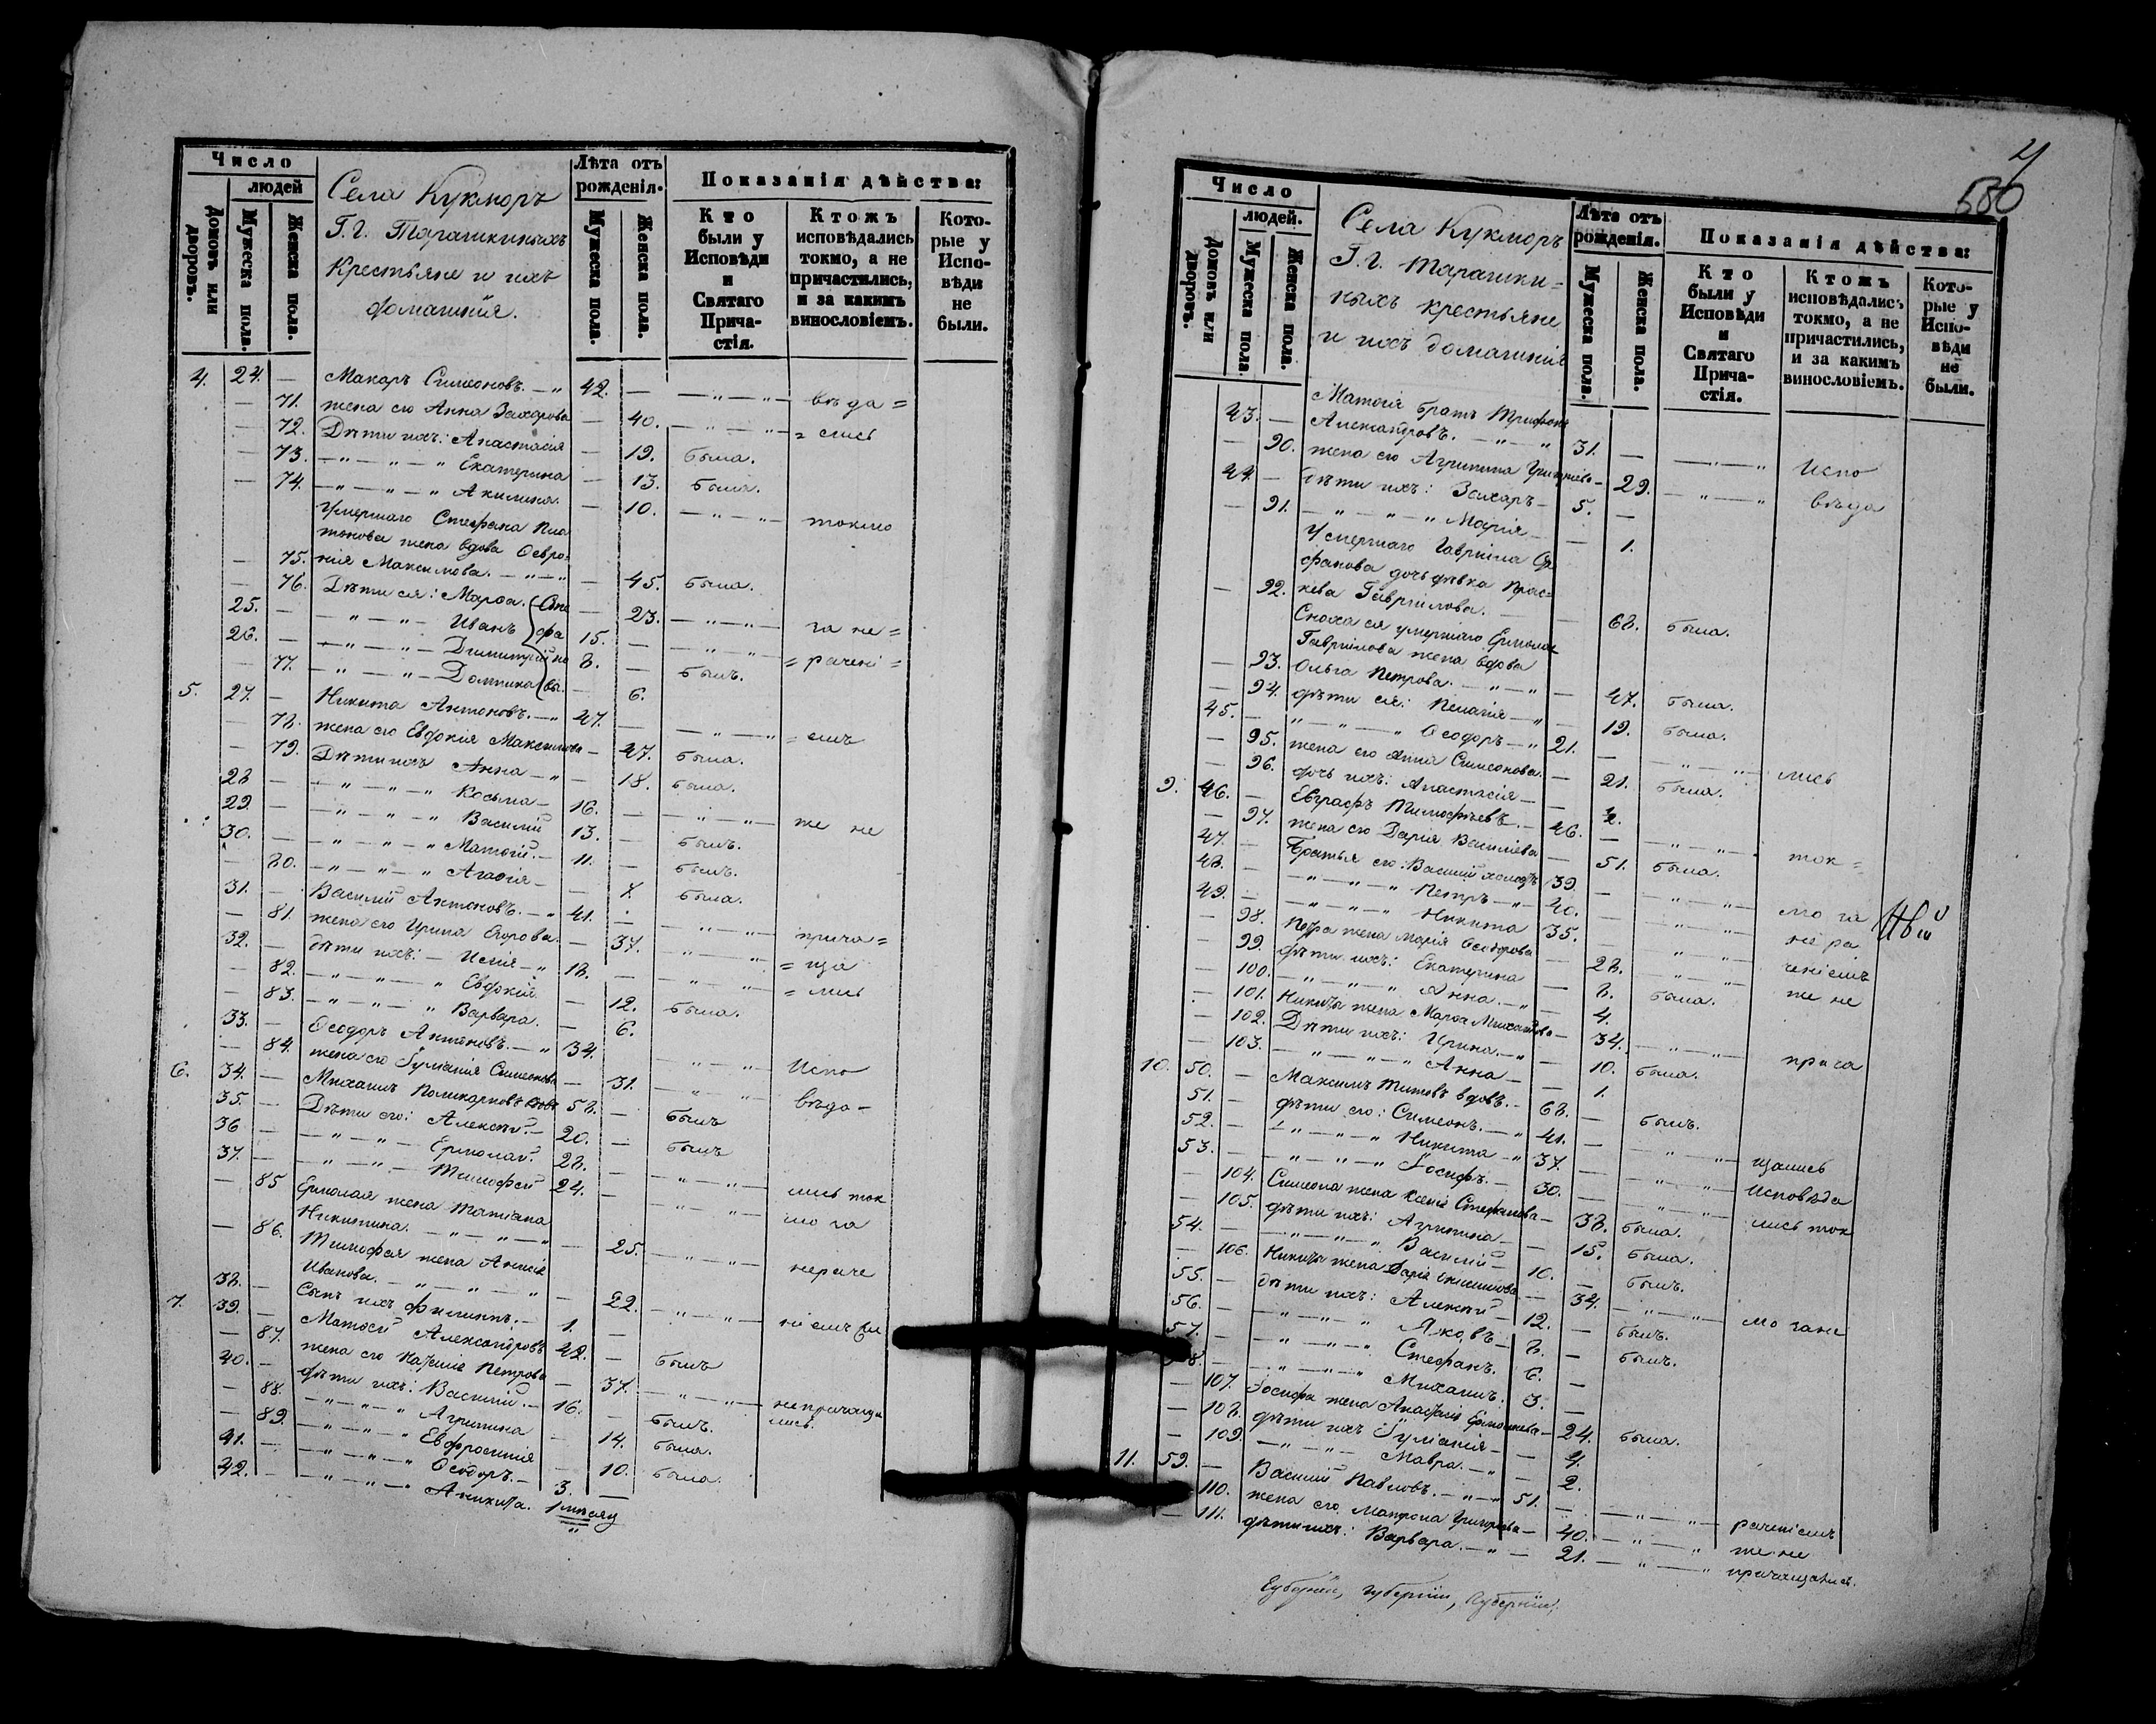 Число
людей
Домовъ или дворовъ.
Мужеска пола.
Женска пола.
Села Кукморъ
Г.г. Тарашкиныхъ
Крестьяне и ихъ
домашнія.
Лѣта отъ рожденія.
Мужеска пола.
Женска пола.
Показанія дѣйства:
Кто были у Исповѣди и Святаго Причастія.
Ктожъ исповѣдались токмо, а не причастились, и за какимъ винословіемъ.
Которые у Исповѣди не были.
4. 24. — Макаръ Симеоновъ. — „ 42. — — „ — „ — вѣда=
— 71. жена его Анна Захарова — 40. — „ — „ — =лись
— 72. Дѣти ихъ: Анастасія — 19. была.
— 73. — „ — „ — „ Екатерина — 13. была.
— 74. — „ — „ — „ Акилина. — 10. — „ — „ — токмо
Умершаго Стефана Пла
тонова жена вдова Ѳевро=
— 75. нія Максимова. — „ — „ — 45. была.
— 76. Дѣти ея: Марѳа. (Сте — 23. — „ — „ — за не=
25. — — „ — „ — Иванъ фа 15. — — „ — „ — =рачені=
26. — — „ — „ — Димитрій но 8. — былъ.
— 77. — „ — „ — Домника (вы. — 6.
5. 27. — Никита Антоновъ. — „ 47. — — „ — „ =емъ
— 78. жена его Евдокія Максимова — 47. была.
— 79. Дѣти ихъ Анна — „ — 18. была.
28 — — „ — „ — „ Косьма — 16. — — „ — „ — же не
29. — — „ — „ — „ Василій 13. — былъ.
30. — — „ — „ — „ Матѳій. — 11. — былъ.
— 80. — „ — „ — „ Агаѳія — — 7. была.
31. — Василій Антоновъ. — „ 41. — — „ — „ — прича=
— 81. жена его Ирина Егорова. — 37. — „ — „ =ща
32. — дѣти ихъ: — Илія — „ 18. — — „ — „ — =лись
— 82. — „ — „ — „ Евдокія — 12. была.
— 83. — „ — „ — „ Варвара. — 6.
33. — Ѳеодоръ Антоновъ. — „ 34. — — „ — „ — Испо
— 84. жена его Іуліанія Симеонова — 31. — „ — „ — вѣда-
6. 34. — Михаилъ Поликарповъ вдовъ 58. — былъ
35. — Дѣти его: Алексѣй. — 20. — былъ
36 — — „ — „ — Ермолай. 28. — — „ — „ — лись ток
37. — — „ — „ — Тимофей 24. — — „ — „ — мо за
— 85 Ермолая жена Татіана
Никитина. — „ — „ — „ — 25. — „ — „ — нераче
— 86. Тимофея жена Анисія
Иванова. — „ — „ — „ — 22. — „ — „ — ніемъ
38. — Сынъ ихъ Филиппъ. — 1. —
7. 39. — Матѳей Александровъ 42. — былъ
— 87. жена его Наталія Петрова — 37. — „ — „ — непричаща
лись.
40. — дѣти ихъ: Василій. — 16. — былъ.
— 88. — „ — „ — „ Агрипина — 14. была.
— 89. — „ — „ — „ Евфросинія — 10. была.
41. — — „ — „ — „ Ѳеодоръ. — 3. —
42. — — „ — „ — „ Аникита. 1 мѣсяц
580
Число
людей.
Домовъ или дворовъ.
Мужеска пола.
Женска пола.
Села Кукморъ
Г.г. Тарашки=
ныхъ крестьяне
и ихъ домашнія
Лѣта отъ рожденія.
Мужеска пола.
Женска пола.
Показанія дѣйства:
Кто были у Исповѣди и Святаго Причастія.
Ктожъ исповѣдались токмо, а не причастились, и за какимъ винословіемъ.
Которые у Исповѣди не были.
Матѳія братъ Трифонъ
43. — Александровъ. — „ — „ 31. — — „ — „ Испо
— 90. жена его Агрипина Григорьева — 29. — „ — „ вѣда
44. — дѣти ихъ: Захаръ — 5. —
— 91. — „ — „ — „ Марія — — 1.
Умершаго Гавріила Сте
фанова дочь дѣвка Прас=
— 92. кева Гавріилова. — — 68. была.
Сноха ея умершаго Ермолая
Гавріилова жена вдова
— 93. Ольга Петрова. — „ — „ — 47. была.
— 94. дѣти ея: Пелагія — „ — 19. была.
45. — „ — „ — „ Ѳеодоръ — „ 21. — — „ — „ — лись
— 95. жена его Анна Симеонова. — 21. была.
— 96. дочь ихъ: Анастасія — —
9. 46. — Евграфъ Тимофѣевъ. — 46. — — „ — „ — ток=
— 97. жена его Дарія Васильева — 51. была.
47. — Братья его: Василій холостъ 39. — — „ — „ — мо за
48. — — „ — „ — „ Петръ — „ — 40. — — „ — „ — нера
49. — — „ — „ — „ Никита 35. — — „ — „ — ченіемъ
— 98. Петра жена Марія Ѳеодорова — 28. — „ — „ — же не
— 99. дѣти ихъ: Екатерина — 8. была.
— 100. — „ — „ — „ Анна. — „ — 4.
— 101. Никиты жена Марѳа Михайлова — 34. — „ — „ — прича
— 102. Дѣти ихъ: Ирина. — „ — 10. была.
— 103. — „ — „ — „ Анна — — 1.
10. 50. — Максимъ Титовъ вдовъ. — 68. — былъ.
51. — дѣти его: Симеонъ. — „ 41. — — „ — „ — щались
52. — — „ — „ — „ Никита — „ 37. — — „ — „ — Исповѣда
53. — — „ — „ — „ Іосифъ. — 30. — — „ — „ — лись ток
— 104. Симеона жена Ксенія Стефанова — 38. была.
— 105. дѣти ихъ: Агрипина — — 15. была.
54. — — „ — „ — „ Василій — 10. — былъ.
— 106. Никиты жена Дарія — 34. — „ — „ — мо зане
55. — дѣти ихъ: Алексѣй — 12. — былъ.
56. — — „ — „ — „ Яковъ — 8. — былъ.
57. — — „ — „ — „ Стефанъ. 6. —
58. — — „ — „ — „ Михаилъ. 3. —
— 107. Іосифа жена Анастасія — 24. была.
— 108. дѣти ихъ Іуліанія — — 4.
— 109. — „ — „ — Мавра. — „ — 2.
11. 59. — Василій Павловъ. — „ — „ 51. — — „ — „ — раченіемъ
110. жена его Матрона Григорьева — 40. — „ — „ же не
— 111. дѣти ихъ: Варвара. — „ — 21. — „ — „ причащались.
Губерніи, губерніи, Губерніи,